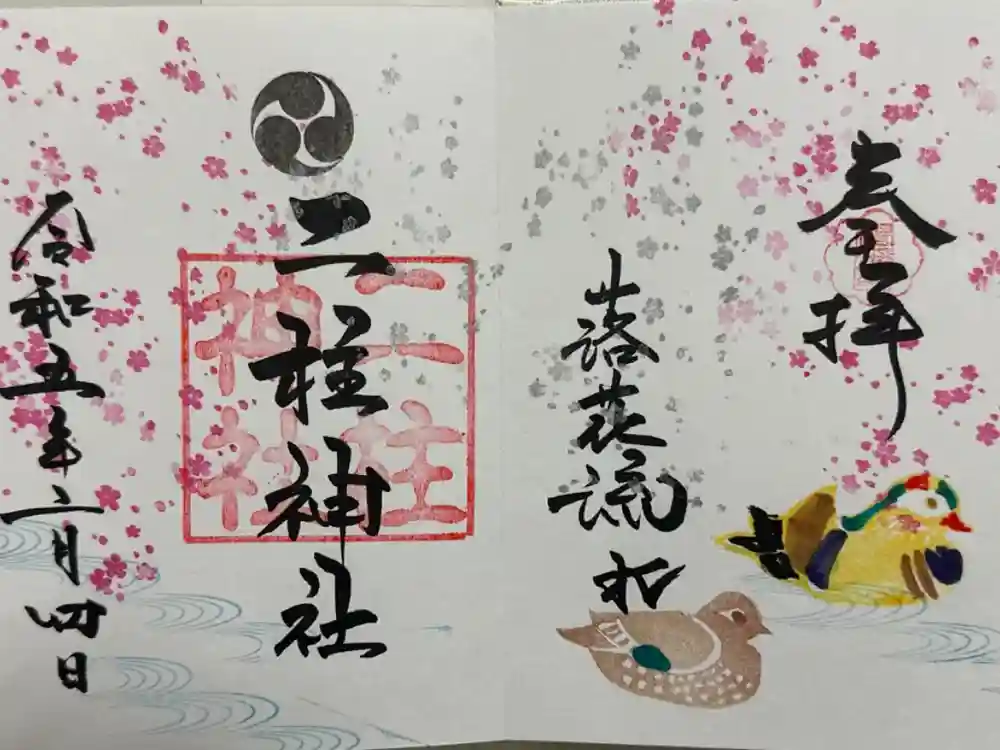 奉拝
落花流水
二柱神社
二柱神社
令和五年二月四日